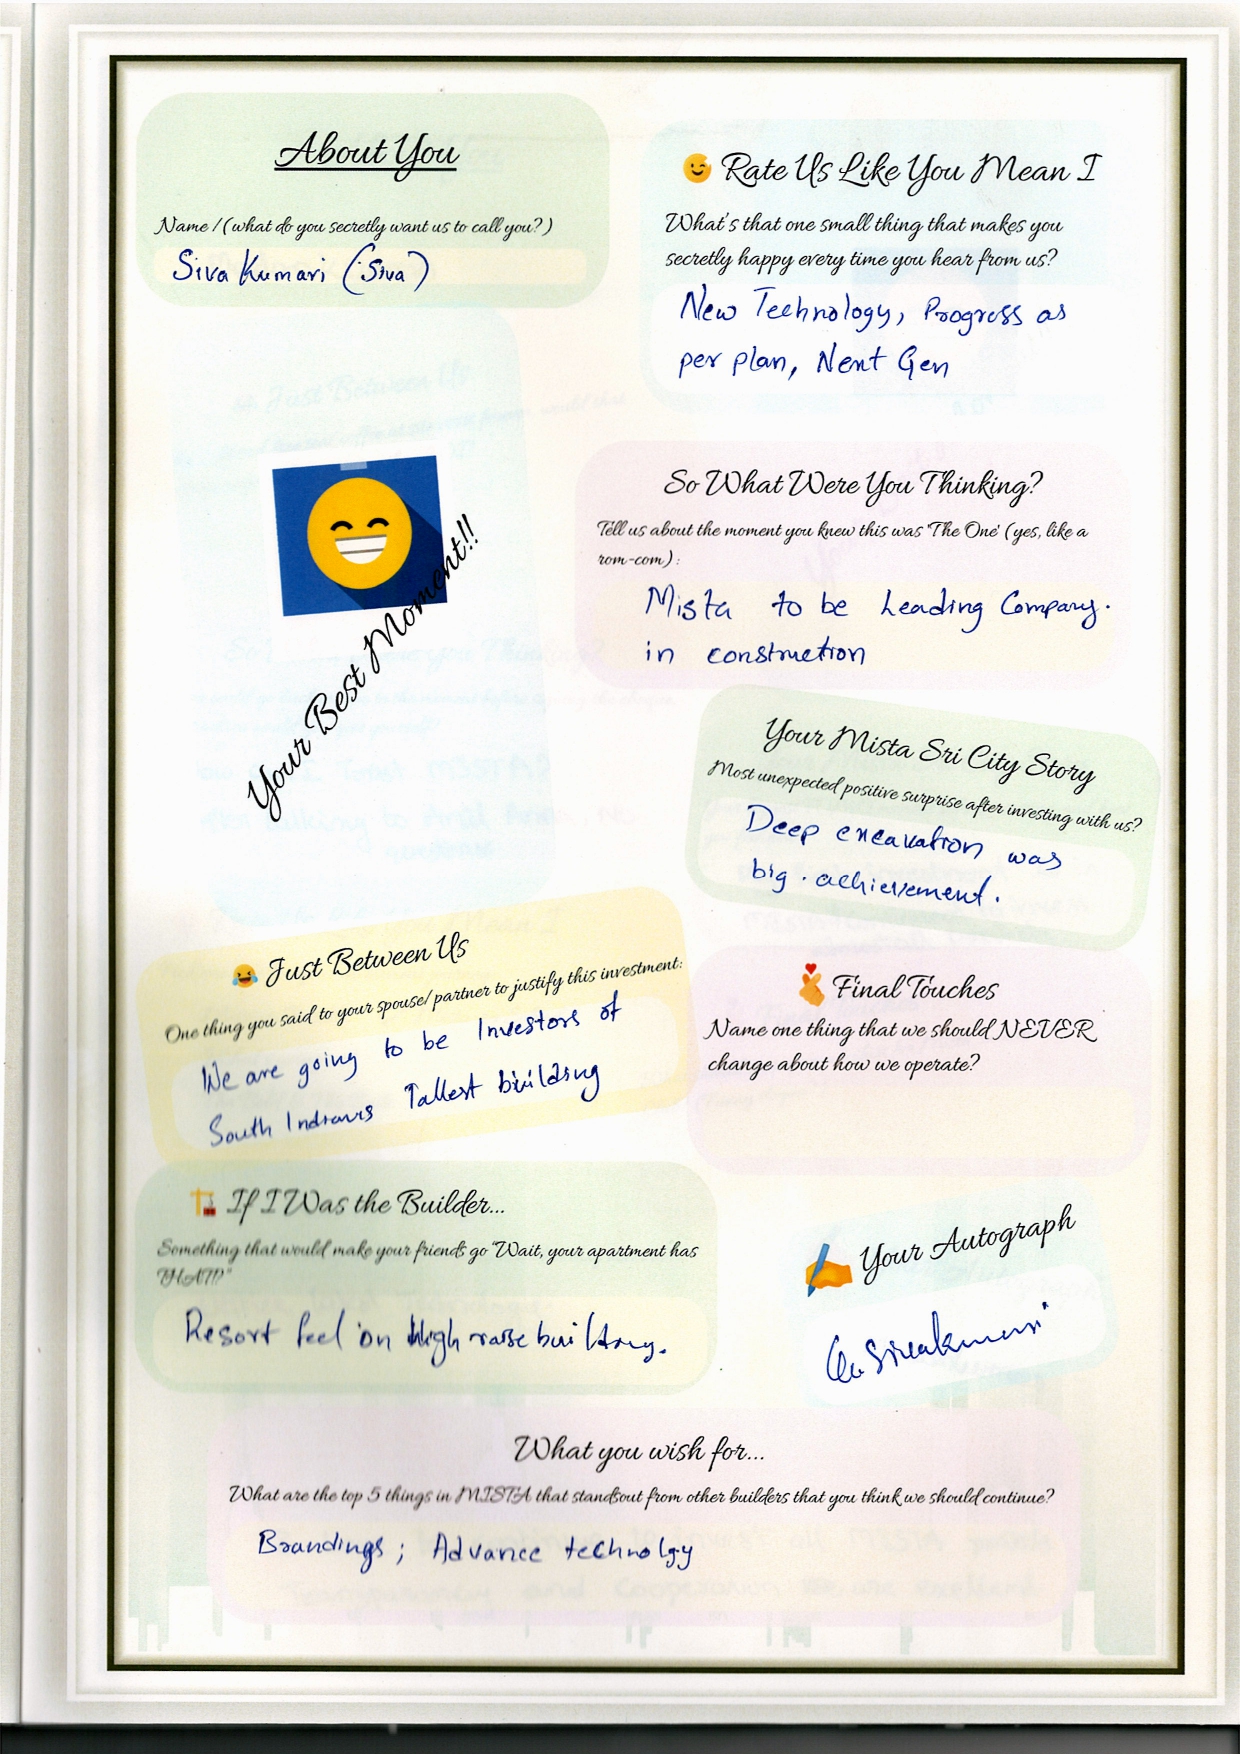 About You
Name / (what do you secretly want us to call you?)
Siva Kumari (Siva)
😉 Rate Us Like You Mean I
What's that one small thing that makes you
secretly happy every time you hear from us?
New Technology, Progress as
per plan, Next Gen
Your Best Moment!!
So What Were You Thinking?
Tell us about the moment you knew this was 'The One' (yes, like a
rom-com) :
Mista to be Leading Company.
in construction
Your Mista Sri City Story
Most unexpected positive surprise after investing with us?
Deep excavation was
big . achievement.
😂 Just Between Us
One thing you said to your spouse/partner to justify this investment:
We are going to be Investors of
South Indians Tallest building
Final Touches
Name one thing that we should NEVER
change about how we operate?
🏗️ If I Was the Builder...
Something that would make your friends go "Wait, your apartment has
THAT!?"
Resort feel on High raise building.
✍️ Your Autograph
Sivakumari
What you wish for...
What are the top 5 things in MISTA that standsout from other builders that you think we should continue?
Brandings ; Advance technolgy